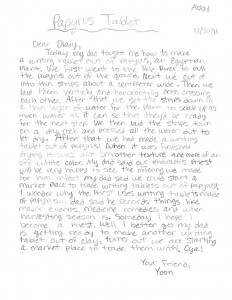 Papyrus Tablet
Dear Diary,
Today my dad taught me how to make
a writing tablet out of papyrus, an Egyptian
Plant. We first went to the Nile River to pull
the papyrus out of the ground. Next we cut it
into thin strips about a centimeter wide. Then we
put them vertically and horizontally criss crossing
each other. After that we set the strips down in
a thin layer of water for the plant to soak up as
much water as it can so that they'd be ready
for the next step. We then put the strips down
on a dry rock and pressed all the water out to
let dry. After that we had made a writing
tablet out of papyrus! When it was finished
drying it was a smoother texture and more of an
off white color. My dad said our main priest
will be very happy to see the offering we made
for him, infact my dad said we could start a
market place to trade writing tablets out of papyrus!
I wonder why the Priest uses writing tablets made
of papyrus. dad said he records things like
major events, medicine remedies and when
harvesting season is. Someday I hope I
become a priest. Well I better go my dad
is getting ready to make another writing
tablet out of clay, turns out we are starting
a market place to trade them with. Cya!
Your Friend,
Yoon